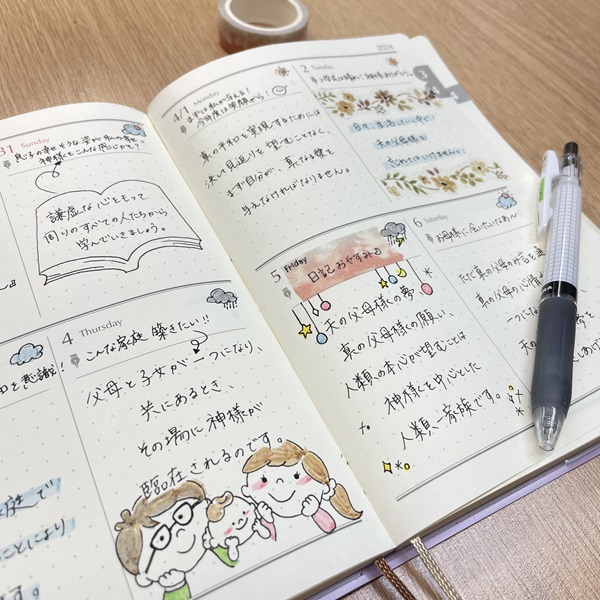 31 Sunday
謙虚な心をもって
周りのすべての人たちから
学んでいきましょう。
4 Thursday
こんな家庭 築きたい!!
父母と子女が一つになり、
共にあるとき、
その場に神様が
臨在されるのです。
2024
4/1 Monday
まずは私が与える!
今年度は笑顔から!
真の平和を実現するためには
決して見返りを望むことなく、
まず自分が、真なる愛を
与えなければなりません。
2 Tuesday
日々、生活していく中で
真の父母様を
忘れてはいけません。
5 Friday
日記おやすみ
天の父母様の夢、
真の父母様の願い、
人類の本心が望むことは
神様を中心とした
人類一家族です。
6 Saturday
お母様に会いたいなあ
ただ真の父母のみ言を通
真の父母の心情